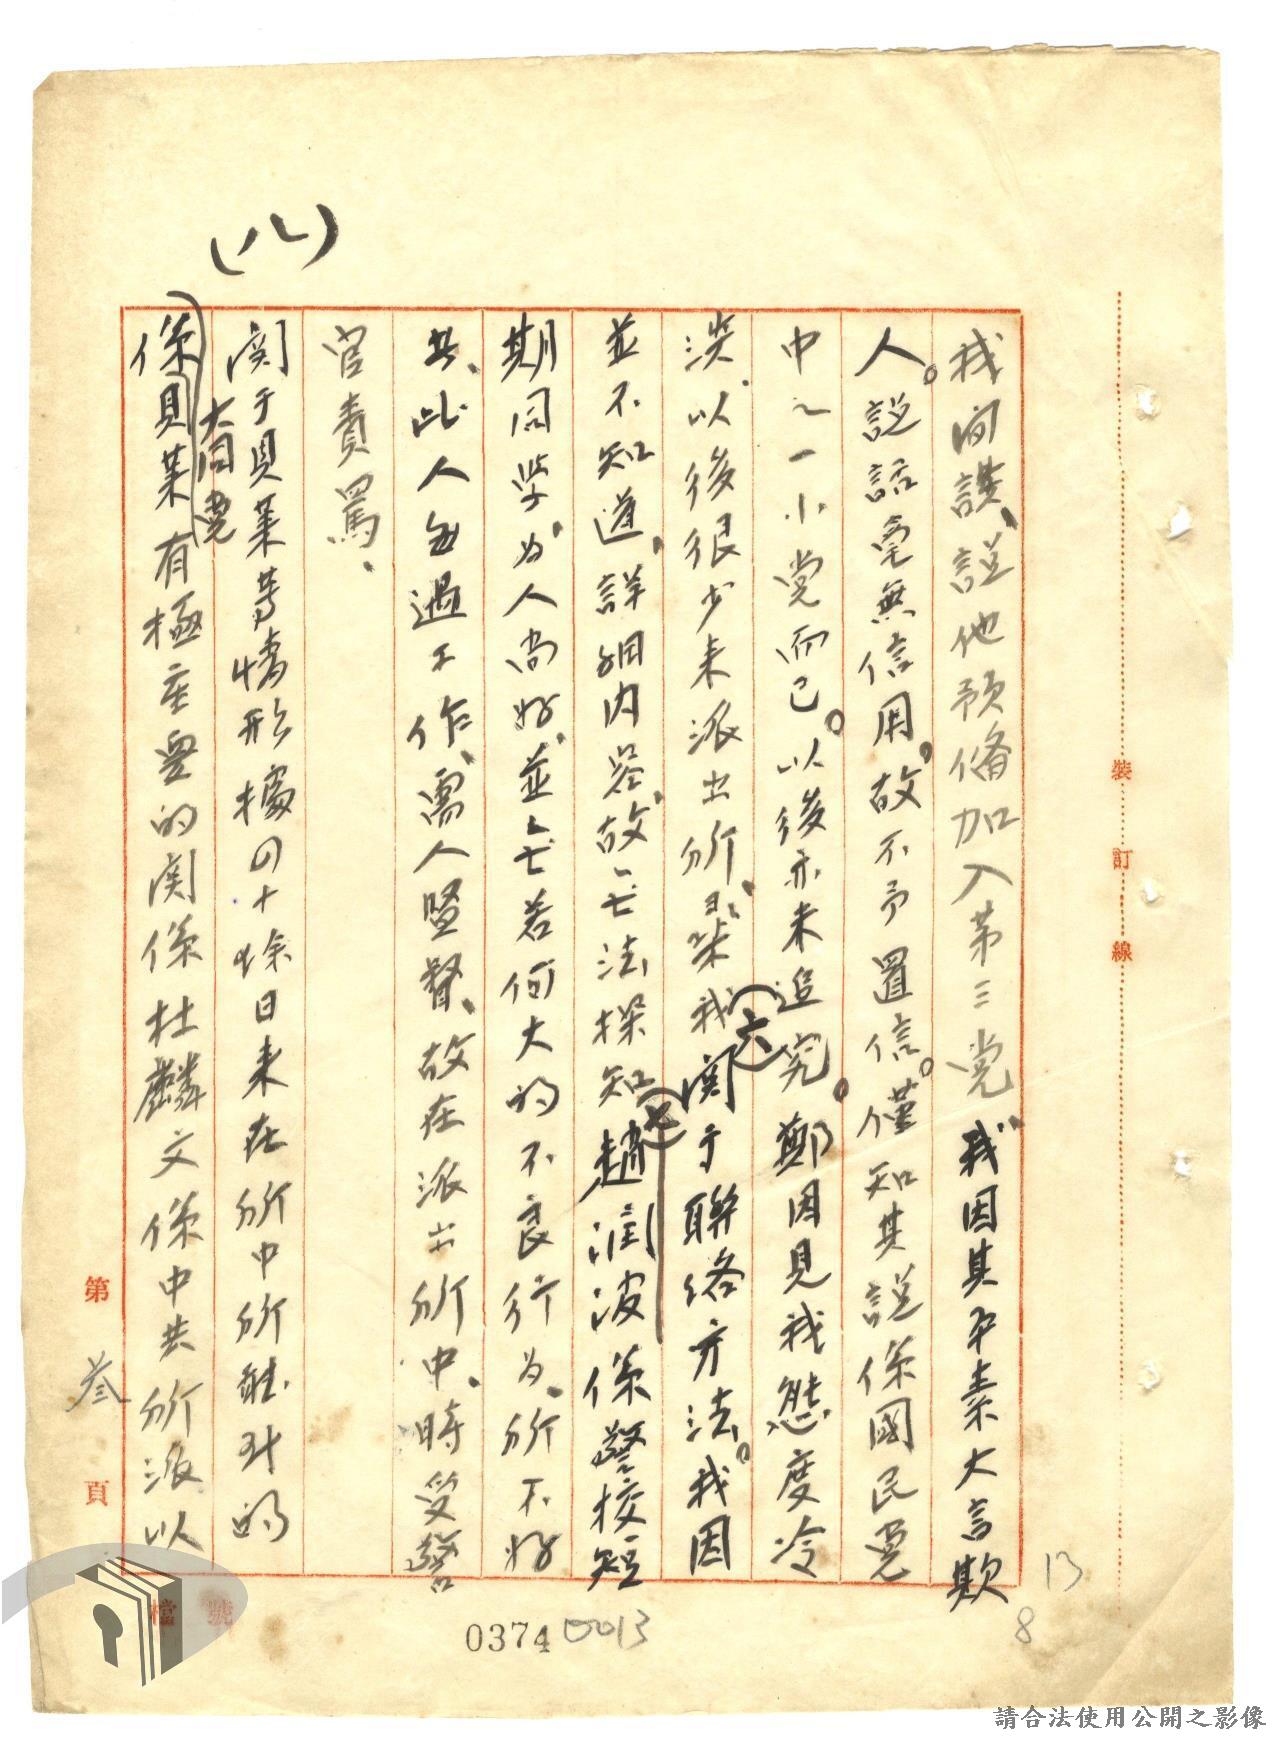 我間談、說他預備加入第三党、我因其平素大言欺
人。說話毫無信用。故不予置信。僅知其說係國民党
中之一小党而已。以後亦未追究。鄭因見我態度冷
淡、以後很少来派出所、
(六)
関于聯絡方法。我因
並不知道、詳細内容、故無法探知
(七)
趙潤波係警校短
期同学、为人尚好、並無若何大的不良行为、所不好
共、此人無過工作、需人監督、故在派出所中、時受警
官責罵、
(八)
関于貝葉等情形據四十餘日来在所中所能对的
大同党
係貝葉有極在要的関係杜麟文係中共所派以
裝訂線
第 叁 頁
檔號
0374
0013
13
8
請合法使用公開之影像